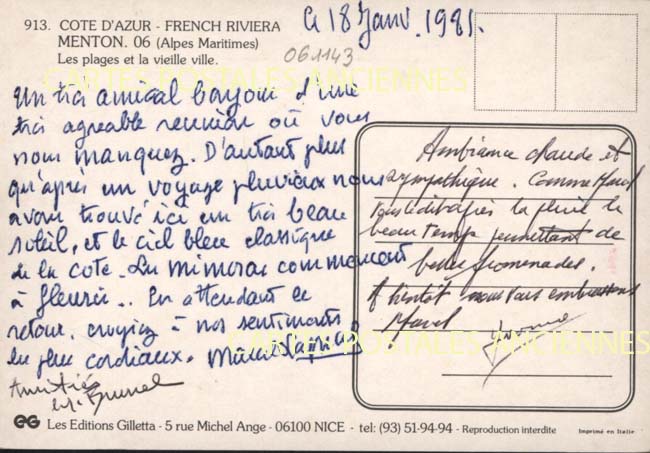 913. COTE D'AZUR - FRENCH RIVIERA
MENTON. 06 (Alpes Maritimes)
Les plages et la vieille ville.
Ce 18 Janv. 1981.
061143
CARTES POSTALES ANCIENNES
Un très amical bonjour d'une
très agréable réunion où vous
nous manquez. D'autant plus
qu'après un voyage pluvieux nous
avons trouvé ici un très beau
soleil, et le ciel bleu classique
de la cote. Les mimosas commencent
à fleurir.. En attendant le
retour, croyez à nos sentiments
les plus cordiaux.
Amitiés
Ambiance chaude et
sympathique. Comme
la pluie le
beau temps permettant de
belles promenades.
A bientôt nous vous embrassons
Marcel Yvonne
CARTES POSTALES ANCIENNES
EG Les Editions Gilletta - 5 rue Michel Ange - 06100 NICE - tel: (93) 51-94-94 - Reproduction interdite
Imprimé en Italie